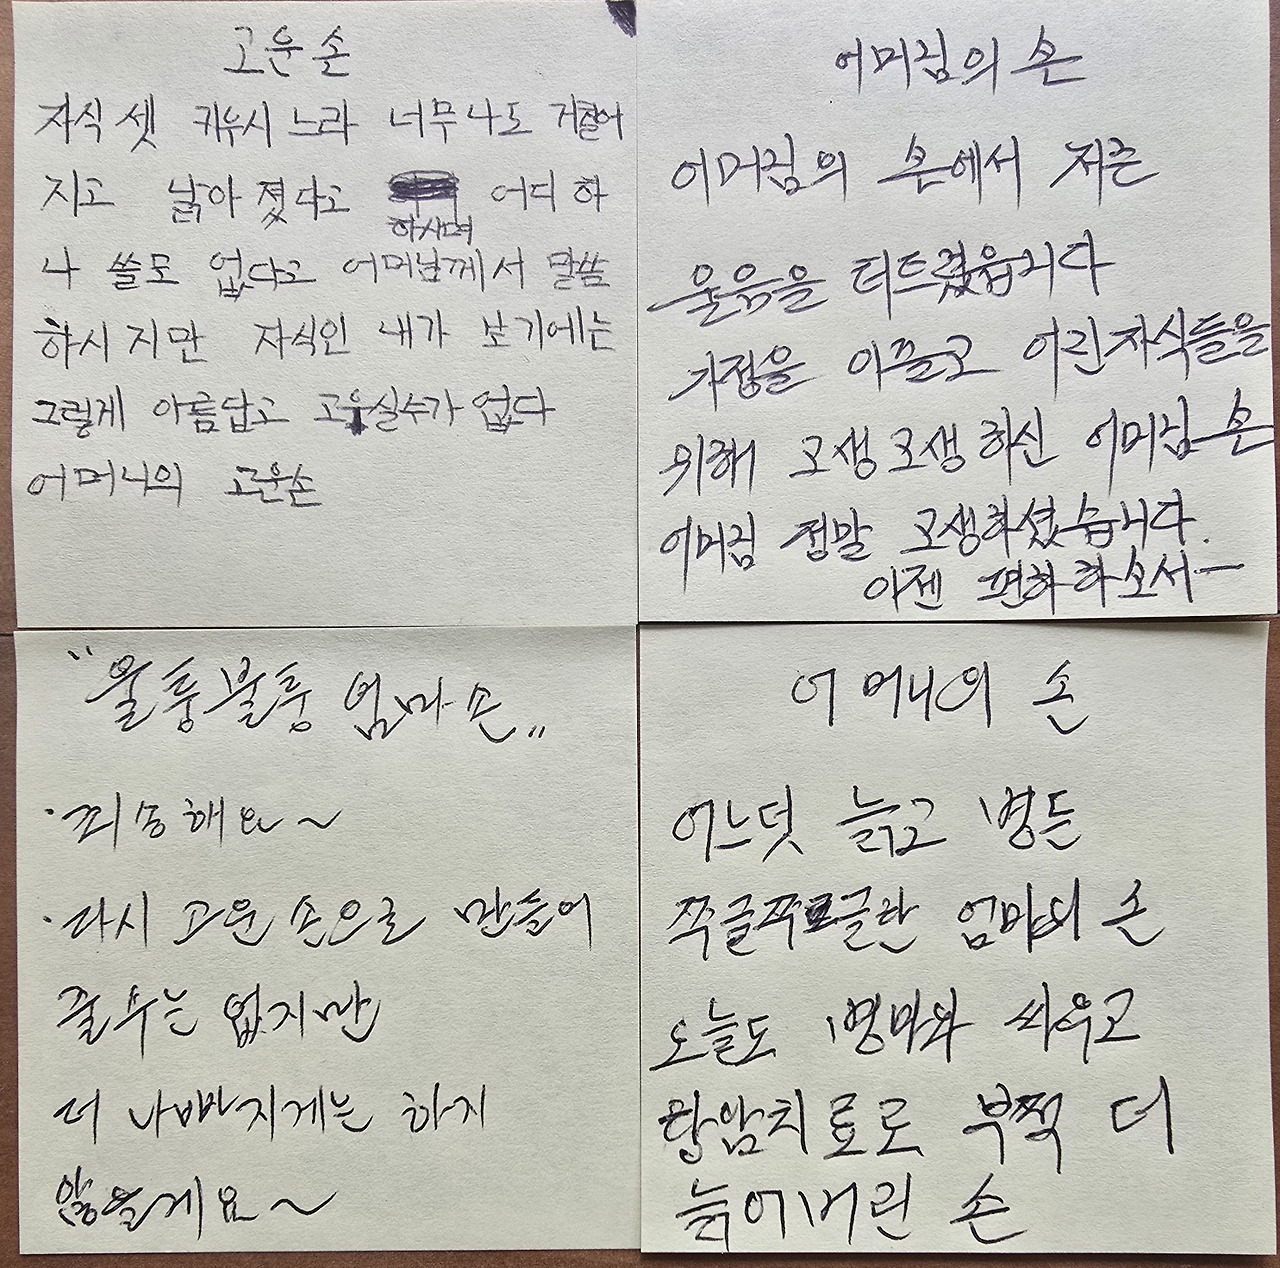 고운 손
자식 셋 키우시느라 너무나도 거칠어
지고 낡아 졌다고 하시며 어디 하
나 쓸모 없다고 어머님께서 말씀
하시지만 자식인 내가 보기에는
그렇게 아름답고 고우실수가 없다
어머니의 고운손
어머님의 손
어머님의 손에서 저는
울음을 터트렸읍니다
가정을 이끌고 어린자식들을
위해 고생고생하신 어머님 손
어머님 정말 고생하셨습니다.
이젠 편하하소서ㅡ
"울퉁불퉁 엄마손"
·죄송해요~
·다시 고운 손으로 만들어
줄 수는 없지만
더 나빠지게는 하지
않을게요~
어머니의 손
어느덧 늙고 병든
쭈글쭈글한 엄마의 손
오늘도 병마와 싸우고
항암치료로 부쩍 더
늙어버린 손